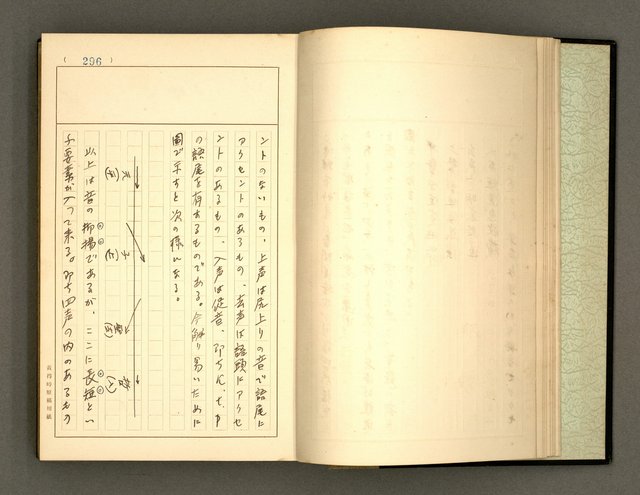 ( 296 )
ントのないもの、上声は尻上りの音で語尾に
アクセントのあるもの、去声は語頭にアクセ
ントのあるもの、入声は促音、即ちん、七、中
の語尾を有するものである。今解り易いために
図で示すと次の様になる。
以上は音の抑揚であるが、ここに長短とい
ふ要素が入って来る。即ち四声の内のあるもの
黃得時原稿用紙